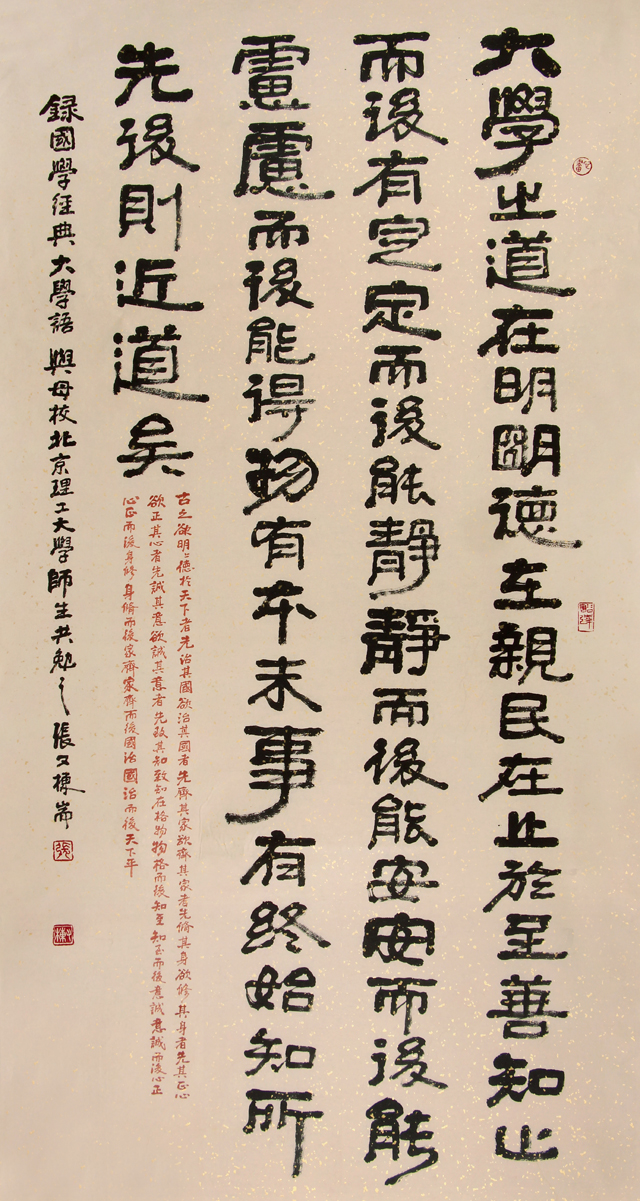 大學之道在明明德在親民在止於至善知止
而後有定定而後能靜靜而後能安安而後能
慮慮而後能得物有本末事有終始知所
先後則近道矣
古之欲明〻德於天下者先治其國欲治其國者先齊其家欲齊其家者先脩其身欲修其身者先其正心
欲正其心者先誠其意欲誠其意者先致其知致知在格物物格而後知至知至而後意誠意誠而後心正
心正而後身修身脩而後家齊家齊而後國治國治而後天下平
録國學經典大學語與母校北京理工大學師生共勉之張又棟